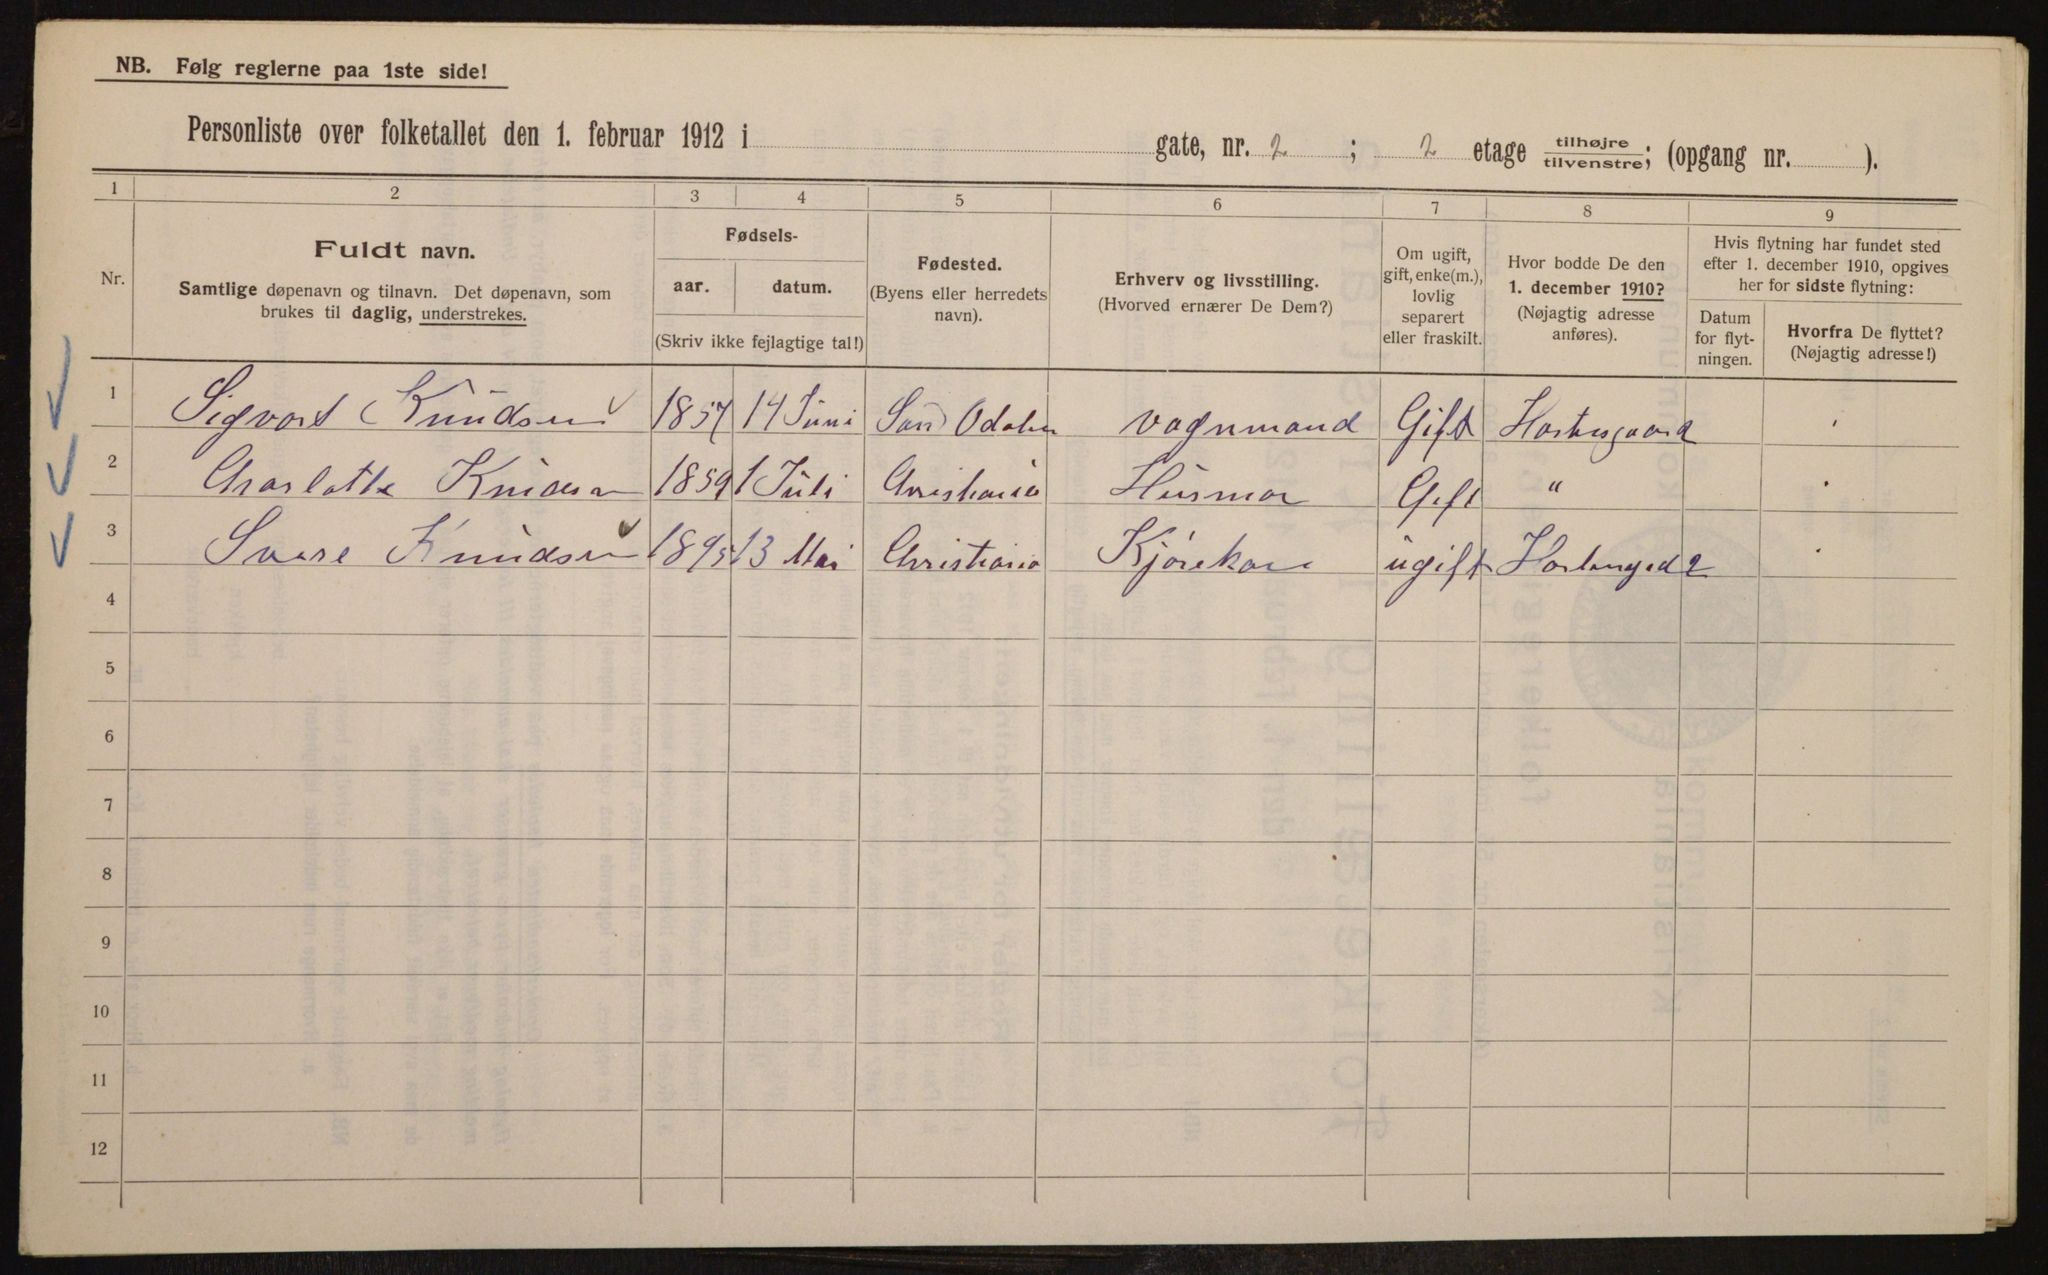 NB. Følg reglerne paa 1ste side!
Personliste over folketallet den 1. februar 1912 i gate, nr. 2 ; 2 etage tilhøjre tilvenstre; (opgang nr. ).
1 2 3 4 5 6 7 8 9
Nr.
Fuldt navn.
Samtlige døpenavn og tilnavn. Det døpenavn, som
brukes til daglig, understrekes.
Fødsels-
aar. datum.
(Skriv ikke fejlagtige tal!)
Fødested.
(Byens eller herredets
navn).
Erhverv og livsstilling.
(Hvorved ernærer De Dem?)
Om ugift,
gift, enke(m.),
lovlig
separert
eller fraskilt.
Hvor bodde De den
1. december 1910?
(Nøjagtig adresse
anføres).
Hvis flytning har fundet sted
efter 1. december 1910, opgives
her for sidste flytning:
Datum
for flyt-
ningen.
Hvorfra De flyttet?
(Nøjagtig adresse!)
1 Sigvart Knudsen 1857 14 Juni Odalen vognmand Gift
2 Charlotte Knudsen 1859 1 Juli Christiania Husmor Gift "
3 Knudsen 1895 13 Mai Christiania Kjørekar ugift
4
5
6
7
8
9
10
11
12